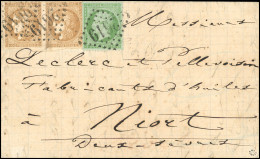 Messieurs
Leclerc et Pellevoisin
Fabricants d'huiles
à
Niort
Deux-Sèvres